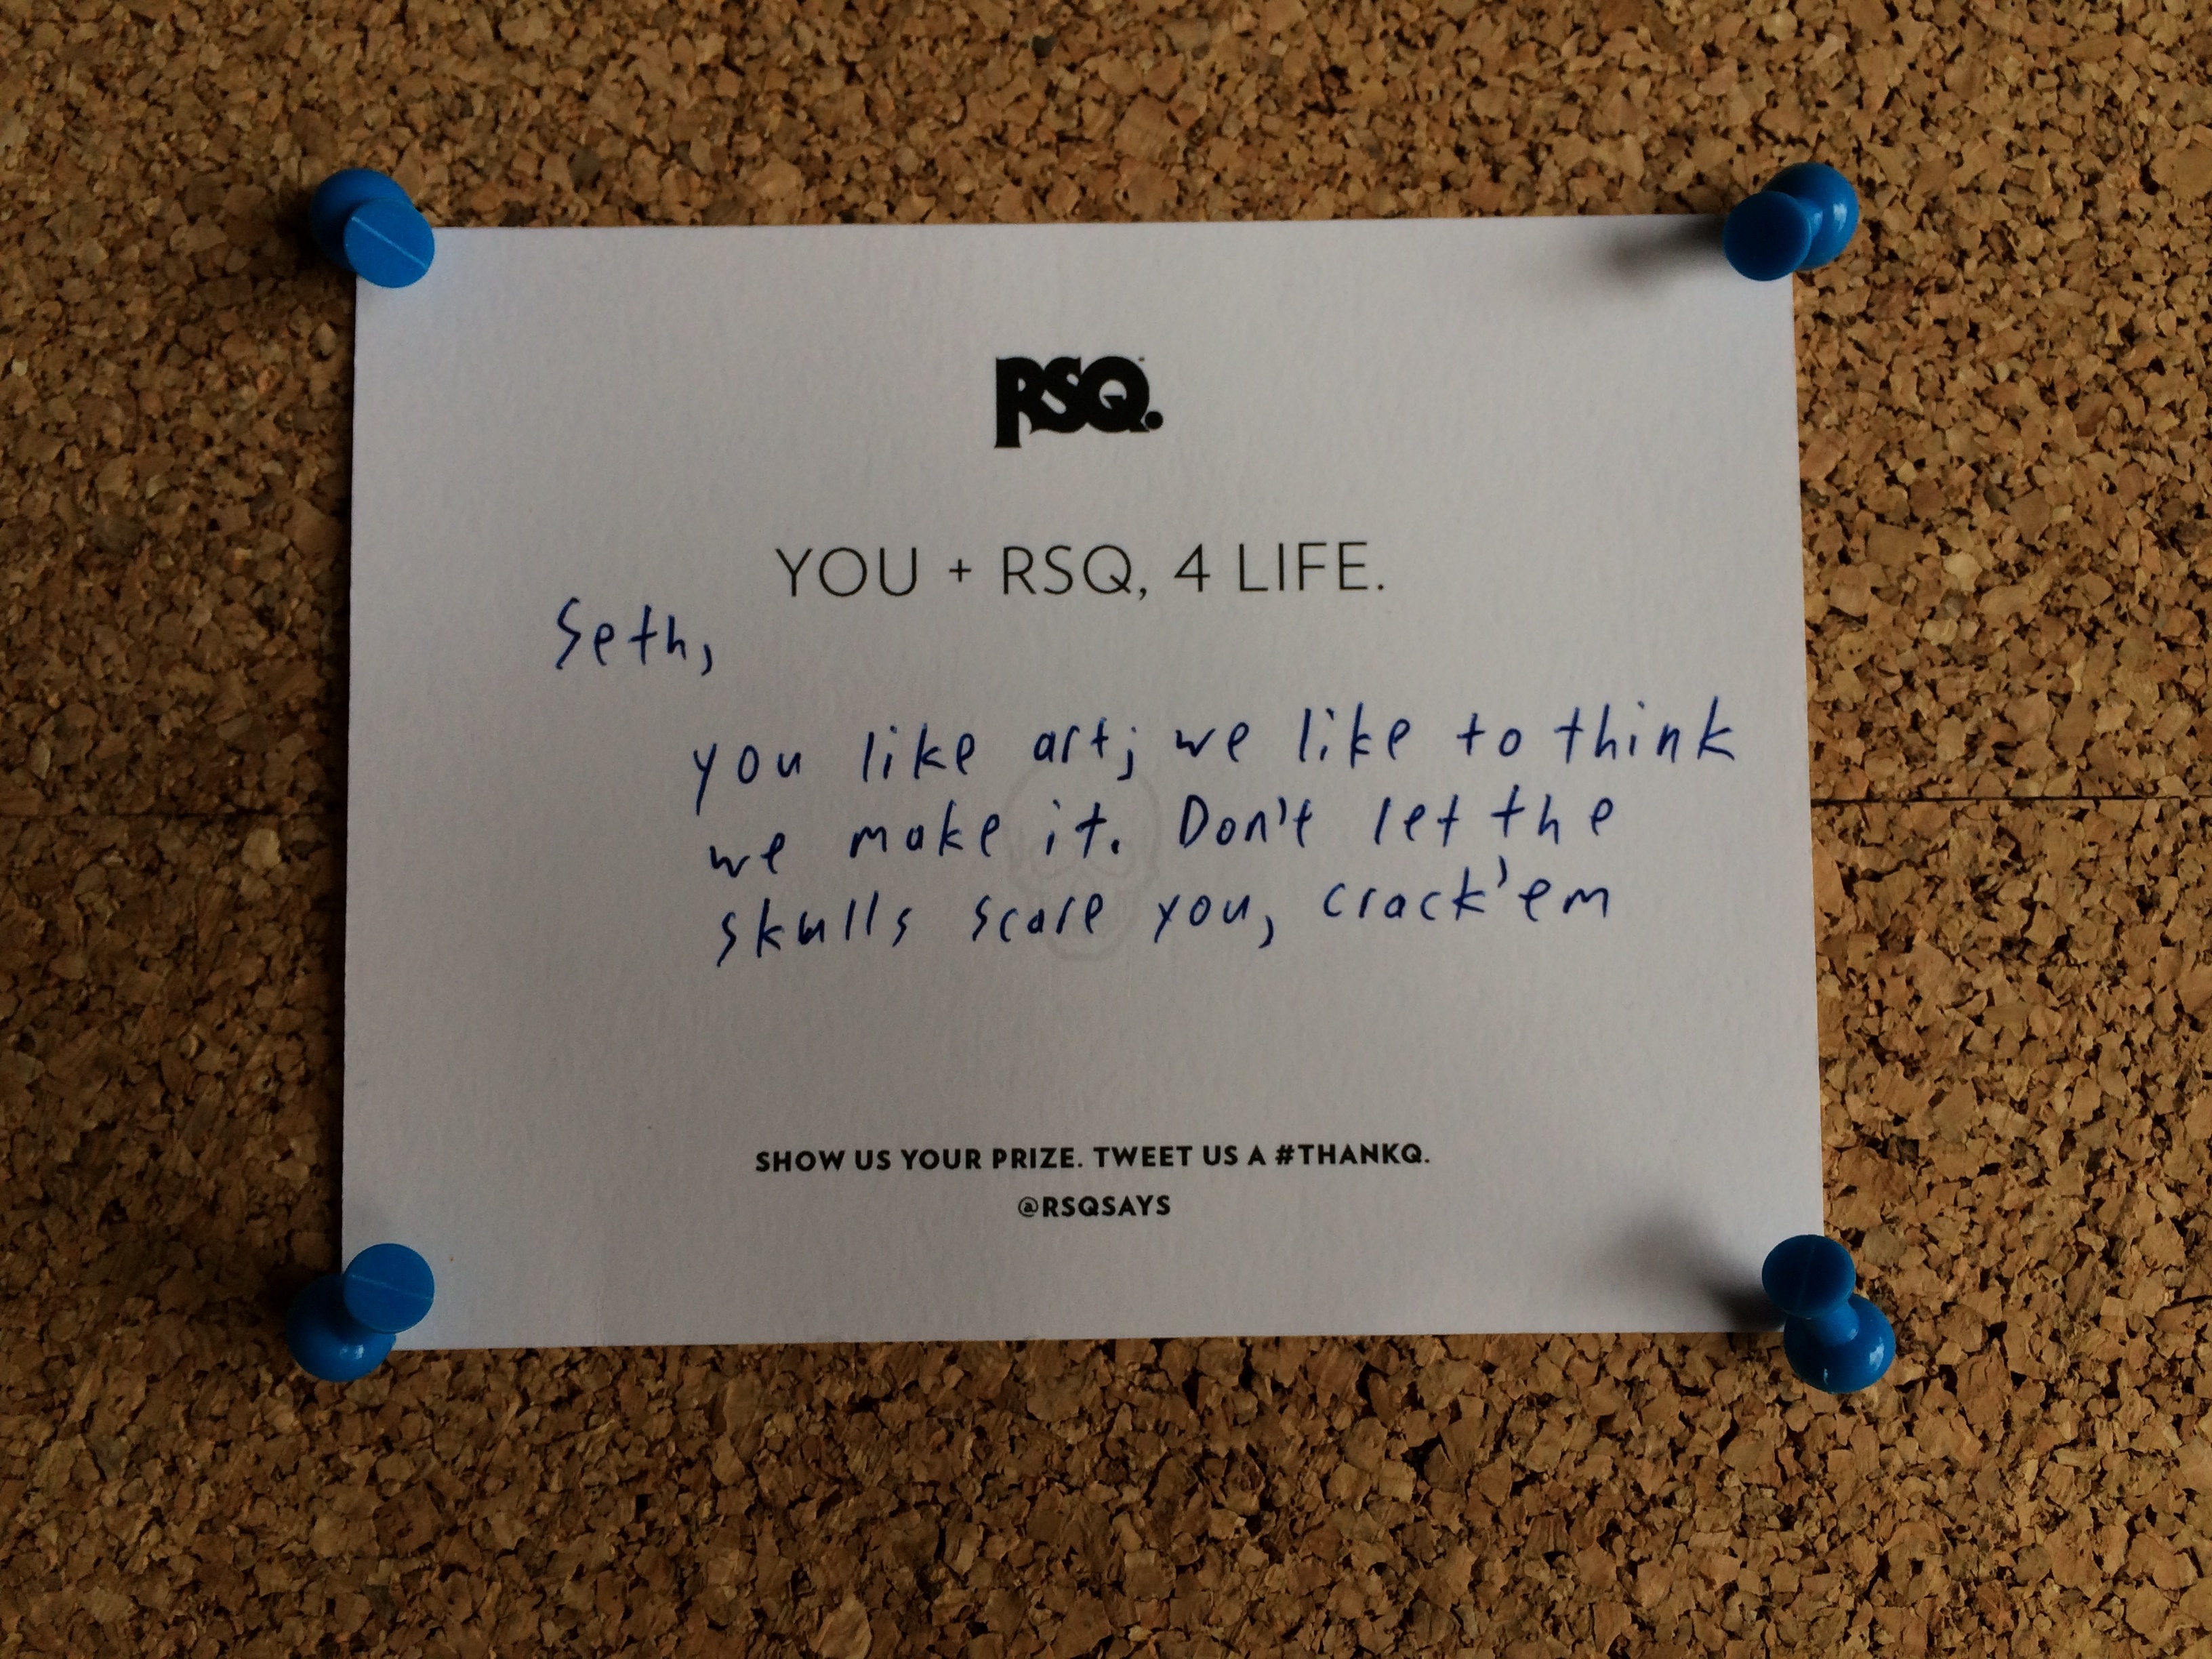 RSQ.
YOU + RSQ, 4 LIFE.
Seth,
you like art; we like to think
we make it. Don't let the
skulls scare you, crack'em
SHOW US YOUR PRIZE. TWEET US A #THANKQ.
@RSQSAYS